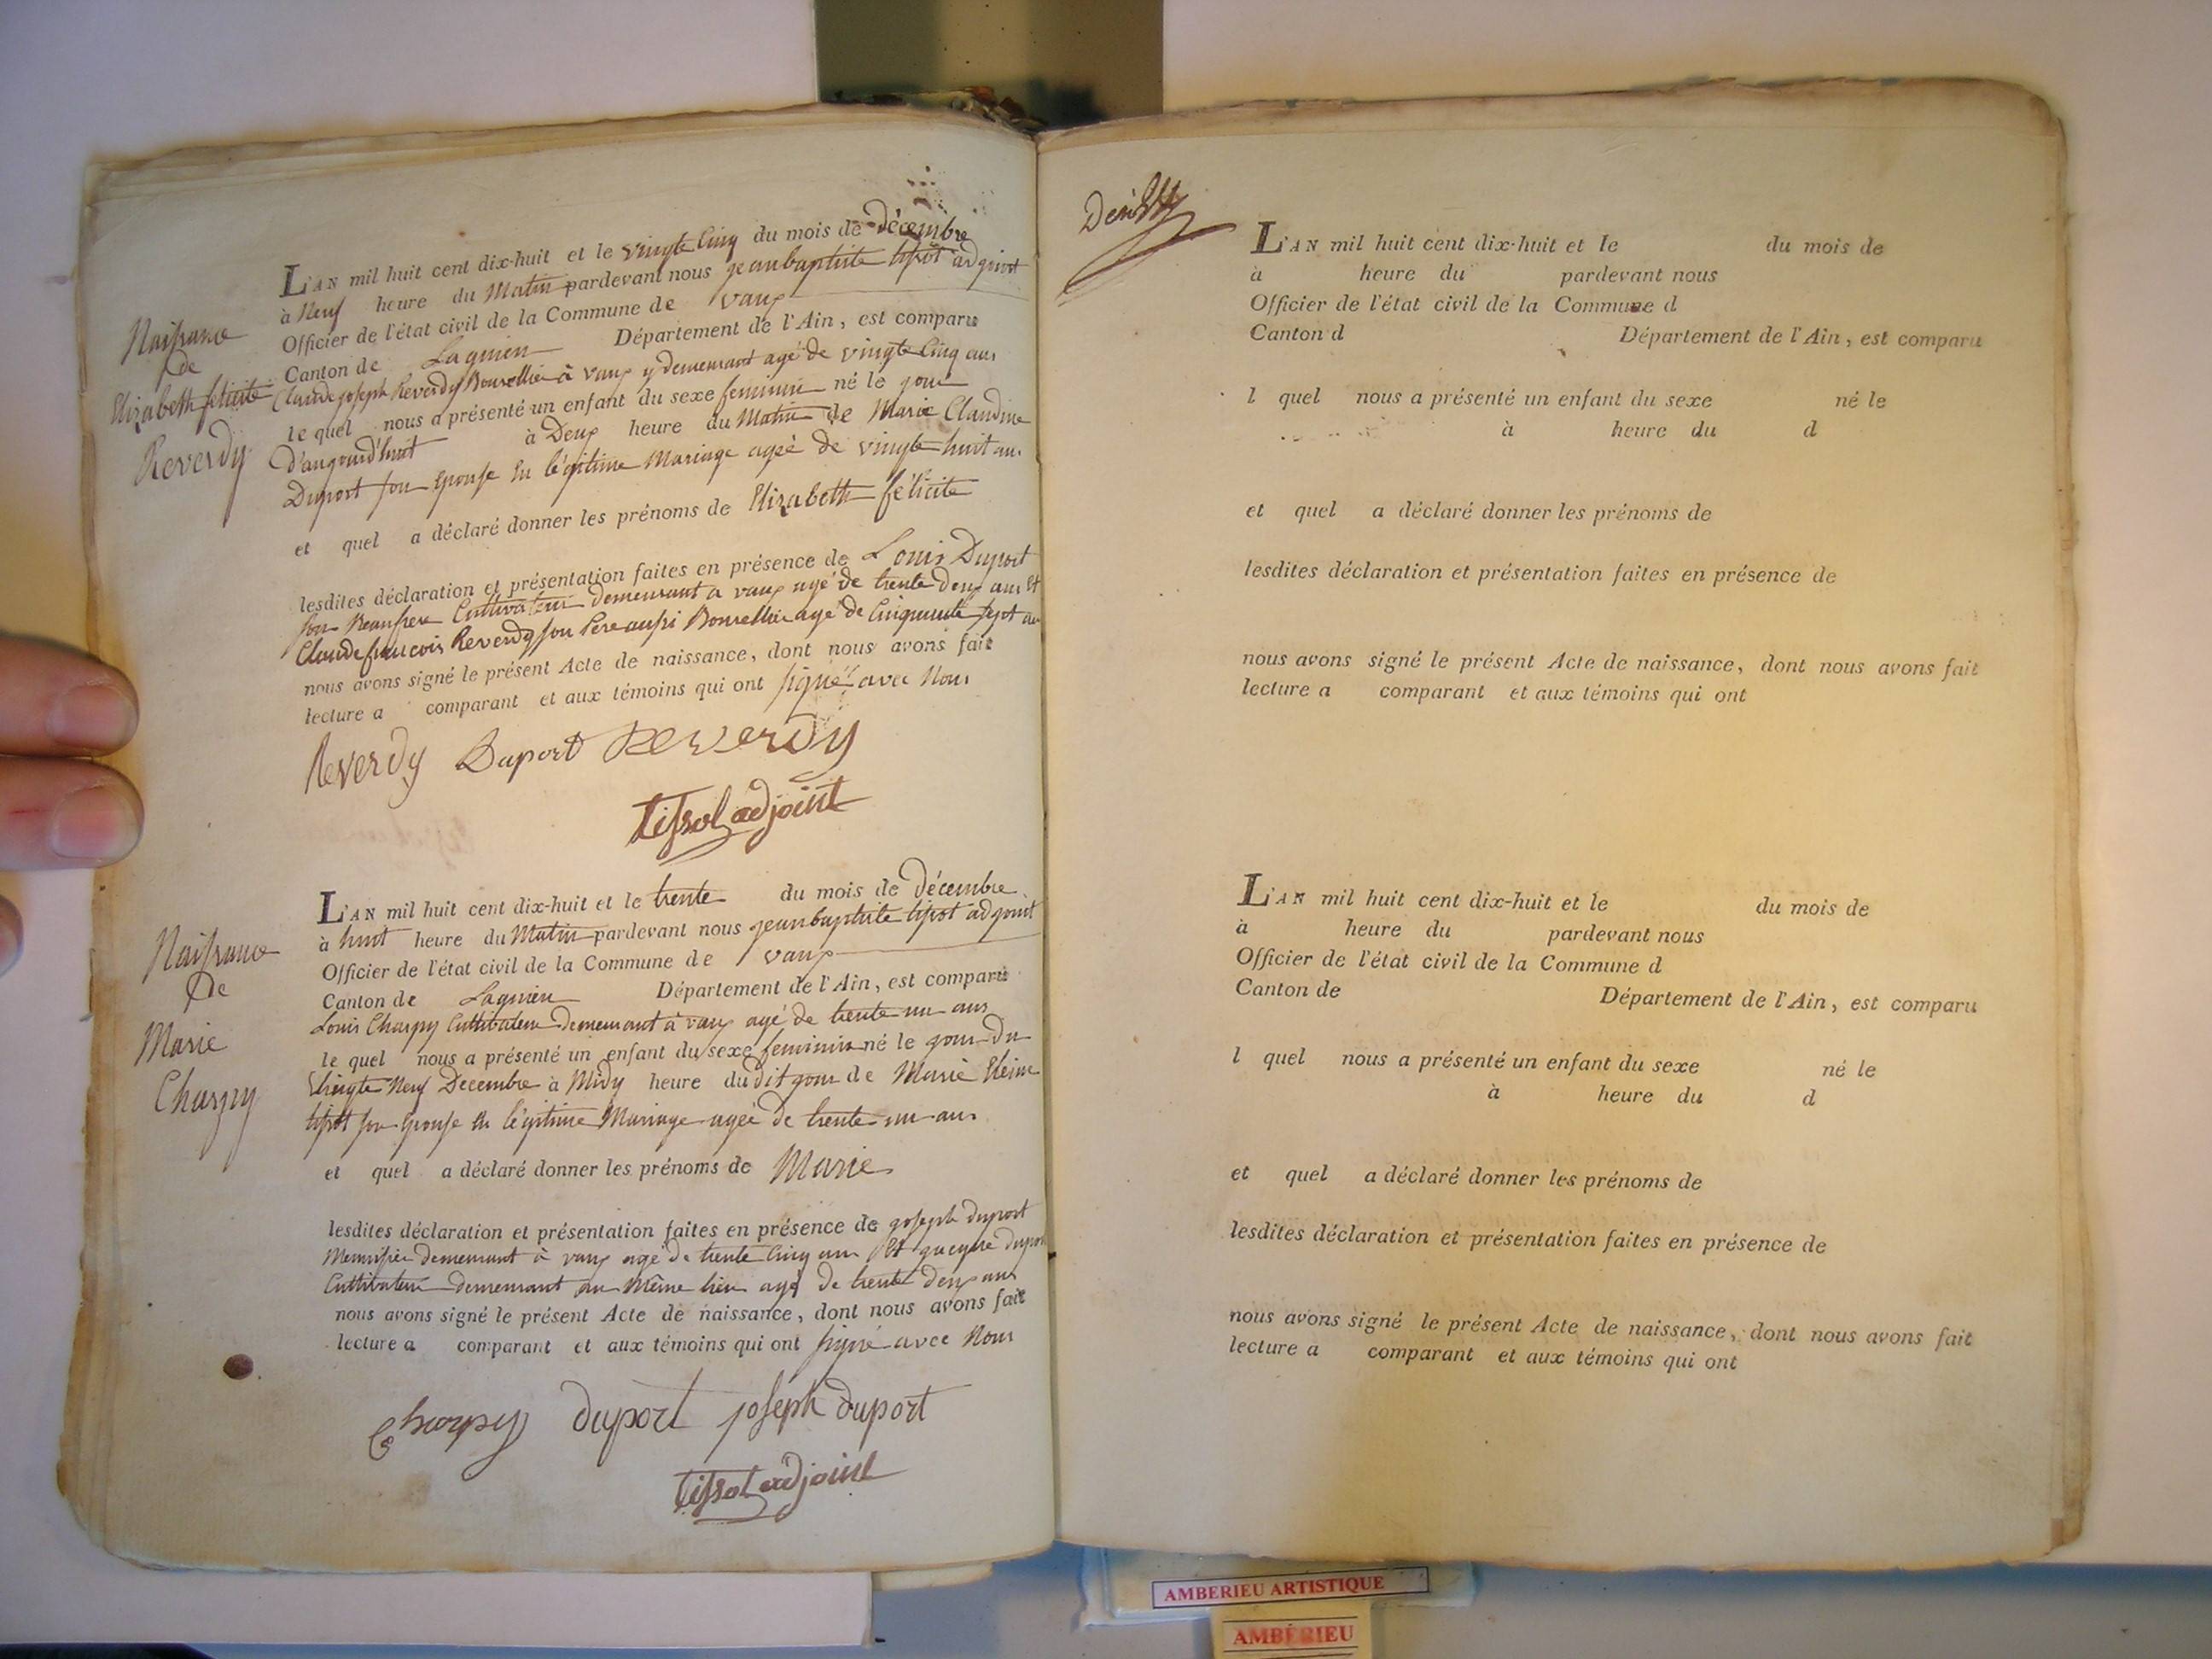 Naissance
de
Elizabeth felicité
Reverdy
L'AN mil huit cent dix-huit et le vingte Cinq du mois de décembre
à Neuf heure du Matin pardevant nous jean baptiste tissot adjoint
Officier de l'état civil de la Commune de vaux
Canton de Lagnieu Département de l'Ain, est comparu
Claude joseph Reverdy Bourellier à vaux y demeurant agé de vingte Cinq ans
le quel nous a présenté un enfant du sexe feminin né le jour
D'aujourd'huit à Deux heure du Matin de Marie Claudine
Duport son Epouse En légitime Mariage ageé de vingte huit ans
et quel a déclaré donner les prénoms de Elizabeth félicité
lesdites déclaration et présentation faites en présence de Louis Duport
son Beaufrere Cultivateur demeurant a vaux agé de trente deux ans Et
Claude francois Reverdy son Pere aussi Bourellier agé de Cinquante sept ans
nous avons signé le présent Acte de naissance, dont nous avons fait
lecture a comparant et aux témoins qui ont signé avec Nous
Reverdy Duport Reverdy
tissot adjoint
Naissance
de
Marie
Charpy
L'AN mil huit cent dix-huit et le trente du mois de décembre
à huit heure du Matin pardevant nous jean baptiste tissot adjoint
Officier de l'état civil de la Commune de vaux
Canton de Lagnieu Département de l'Ain, est comparu
Louis Charpy Cultivateur demeurant à vaux agé de trente un ans
le quel nous a présenté un enfant du sexe feminin né le jour Du
Vingte Neuf Decembre à Midy heure du dit jour de Marie Reine
tissot son Epouse En légitime Mariage ageé de trente un ans
et quel a déclaré donner les prénoms de Marie
lesdites déclaration et présentation faites en présence de joseph duport
Menuisier demeurant à vaux agé de trente Cinq ans Et duport
Cultivateur demeurant au Même lieu agé de trente deux ans
nous avons signé le présent Acte de naissance, dont nous avons fait
lecture a comparant et aux témoins qui ont signé avec Nous
Charpy duport joseph duport
tissot adjoint
L'AN mil huit cent dix-huit et le du mois de
à heure du pardevant nous
Officier de l'état civil de la Commune d
Canton d Département de l'Ain, est comparu
l quel nous a présenté un enfant du sexe né le
à heure du d
et quel a déclaré donner les prénoms de
lesdites déclaration et présentation faites en présence de
nous avons signé le présent Acte de naissance, dont nous avons fait
lecture a comparant et aux témoins qui ont
L'AN mil huit cent dix-huit et le du mois de
à heure du pardevant nous
Officier de l'état civil de la Commune d
Canton de Département de l'Ain, est comparu
l quel nous a présenté un enfant du sexe né le
à heure du d
et quel a déclaré donner les prénoms de
lesdites déclaration et présentation faites en présence de
nous avons signé le présent Acte de naissance, dont nous avons fait
lecture a comparant et aux témoins qui ont
AMBERIEU ARTISTIQUE
AMBÉRIEU